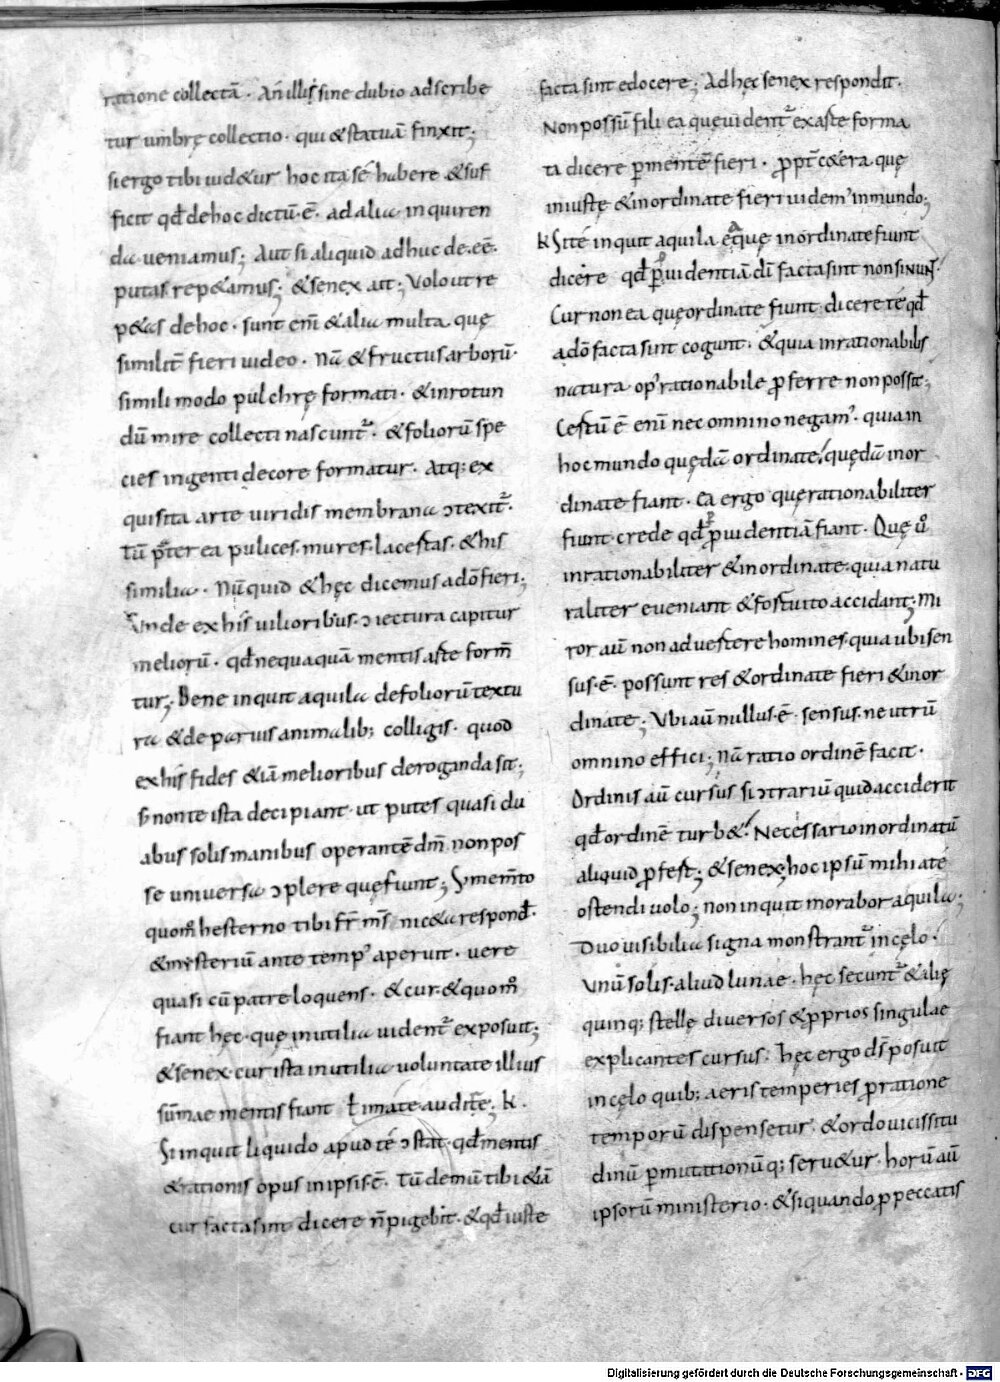 ratione collectā· Añ illis sine dubio adscribe
tur umbrę collectio· qui & statuā finxit;
si ergo tibi uid&ur hoc ita sé habere & suf
ficit qđ de hoc dictū·ē· ad alia inquiren
da ueniamus; Aut si aliquid adhuc de·eē·
putas rep&amus; & senex ait; Volo ut re
p&as de hoc· sunt em̄ & alia multa quę
similit̄ fieri uideo· Nā & fructus arborū·
simili modo pulchrę formati· & in rotun
dū mire collecti nascunt᷑· & foliorū spe
cies ingenti decore formatur· Atq; ex
quisita arte uiridis membrana ɔtexit᷑·
Tū p̄ter ea pulices· mures· lacertas· & his
similia· Nūquid & hęc dicemus a dō fieri;
Unde ex his uilioribus· ɔiectura capitur
meliorū· qđ nequaquā mentis arte form̄
tur; Bene inquit aquila de foliorū textu
ra & de paruis animalib; colligis· quod
ex his fides &iā melioribus deroganda sit;
S; non te ista decipiant· ut putes quasi du
abus solis manibus operantē dm̄ non pos
se uniuersa ɔplere quę fiunt; S; mem̄to
quom̊ hesterno tibi fr̄ m̄s nic&a respond̄·
& mysteriū ante temp' aperuit· uere
quasi cū patre loquens· & cur· & quom̊
fiant hęc· quę inutilia uident᷑ exposuit;
& senex· cur ista inutilia uoluntate illius
sūmae mentis fiant ł imate audite; K·
Si inquit liquido apud té ɔstat· qđ mentis
& rationis opus in ipsis·ē· Tū demū tibi &iā
cur facta sint dicere n̄ pigebit· & qđ iuste
facta sint edocere; Ad hęc senex respondit·
Non possū fili ea quę uident᷑ ex arte forma
ta dicere p̱ mentē fieri· ꝓpt̄ c&era quę
iniustę & inordinate fieri uidem' in mundo;
K Si té inquit aquila ea quę inordinate fiunt
dicere qđ p̱ ꝓuidentiā dī facta sint non sinunt·
Cur non ea quę ordinate fiunt· dicere té qđ
a dō facta sint cogunt· & quia inrationabilis
natura op' rationabile ꝓferre non possit;
Certū ē enī nec omnino negam'· quia in
hoc mundo quędā ordinate· quędā inor
dinate fiant· Ea ergo quę rationabiliter
fiunt· crede qđ p̱ ꝓuidentiā fiant· Quę ů
inrationabiliter & inordinate· quia natu
raliter eueniant & fortuito accidant; Mi
ror aū non aduertere homines· quia ubi sen
sus·ē· possunt res & ordinate fieri & inor
dinate; Ubi aū nullus·ē· sensus· neutrū
omnino effici; Nā ratio ordinē facit·
Ordinis aū cursus si ɔtrariū quid acciderit
qđ ordinē turb&· Necessario inordinatū
aliquid ꝓfert; & senex; hoc ipsū mihi a té
ostendi uolo; non inquit morabor aquila;
Duo uisibilia signa monstrant᷑ in cęlo·
unū solis· aliud lunae· hęc secunt᷑ & alię
quinq; stellę diuersos & ꝓprios singulae
explicantes cursus· Hęc ergo ds̄ posuit
in cęlo quib; aeris temperies ꝓ ratione
temporū dispensetur· & ordo uicissitu
dinū p̱mutationūq; seru&ur· horū aū
ipsorū ministerio· & si quando ꝓ peccatis
Digitalisierung gefördert durch die Deutsche Forschungsgemeinschaft · DFG